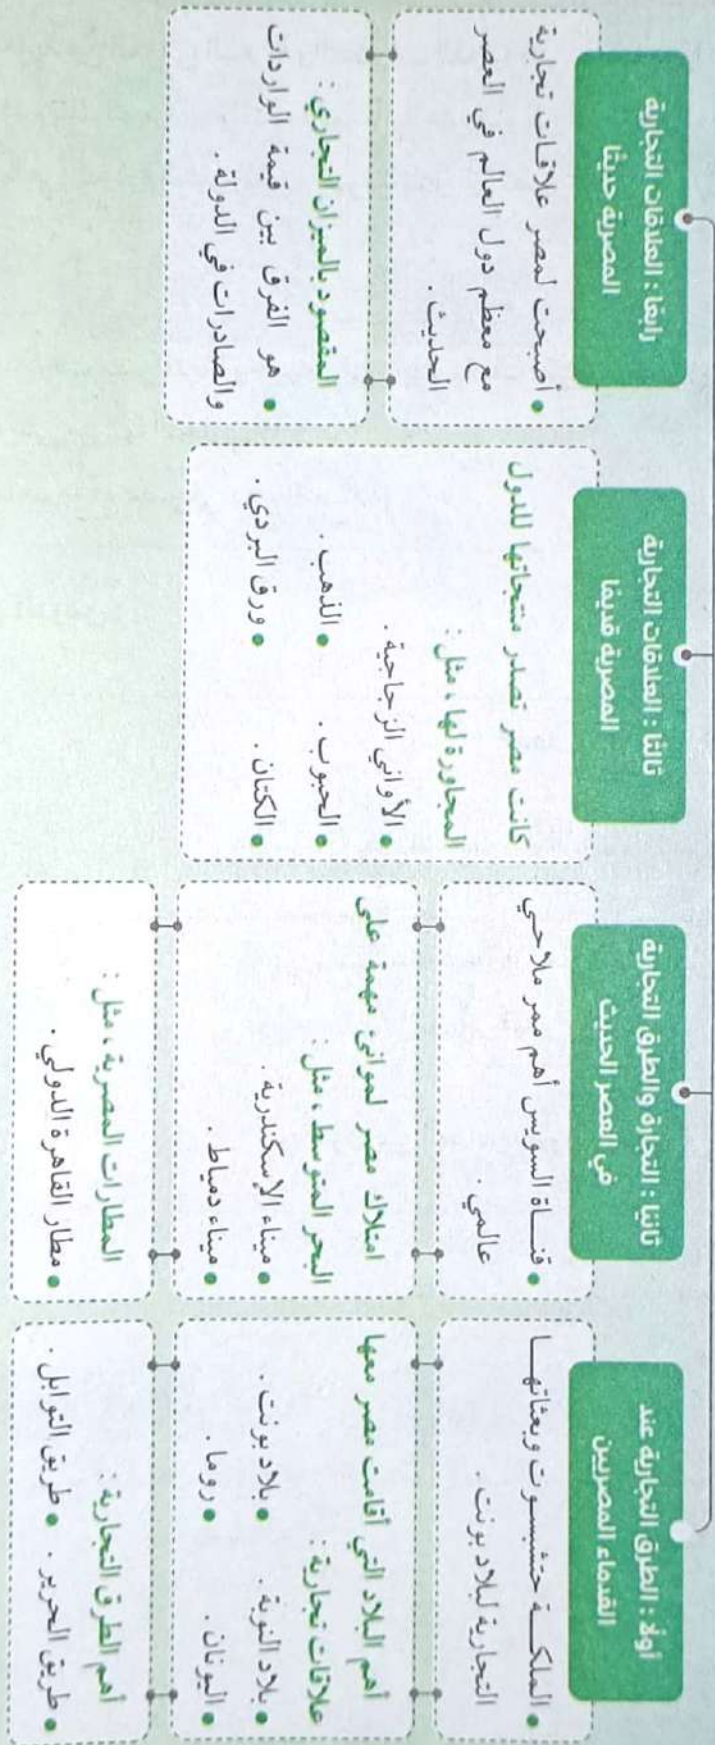 أولًا : الطرق التجارية عند
القدماء المصريين
• الملكة حتشبسوت وبعثاتها
التجارية لبلاد بونت .
أهم البلاد التي أقامت مصر معها
علاقات تجارية :
• بلاد النوبة . • بلاد بونت .
• اليونان . • روما .
أهم الطرق التجارية :
• طريق الحرير . • طريق التوابل .
ثانيًا : التجارة والطرق التجارية
في العصر الحديث
• قناة السويس أهم ممر ملاحي
عالمي .
امتلاك مصر لموانئ مهمة على
البحر المتوسط ، مثل :
• ميناء الإسكندرية .
• ميناء دمياط .
المطارات المصرية ، مثل :
• مطار القاهرة الدولي .
ثالثًا : العلاقات التجارية
المصرية قديمًا
كانت مصر تصدر منتجاتها للدول
المجاورة لها ، مثل :
• الأواني الزجاجية .
• الحبوب . • الذهب .
• الكتان . • ورق البردي .
رابعًا : العلاقات التجارية
المصرية حديثًا
• أصبحت لمصر علاقات تجارية
مع معظم دول العالم في العصر
الحديث .
المقصود بالميزان التجاري :
• هو الفرق بين قيمة الواردات
والصادرات في الدولة .